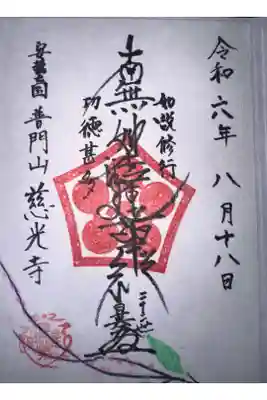 令和六年 八月十八日
如説修行
南無妙法蓮華経
功徳甚多
普門山 慈光寺